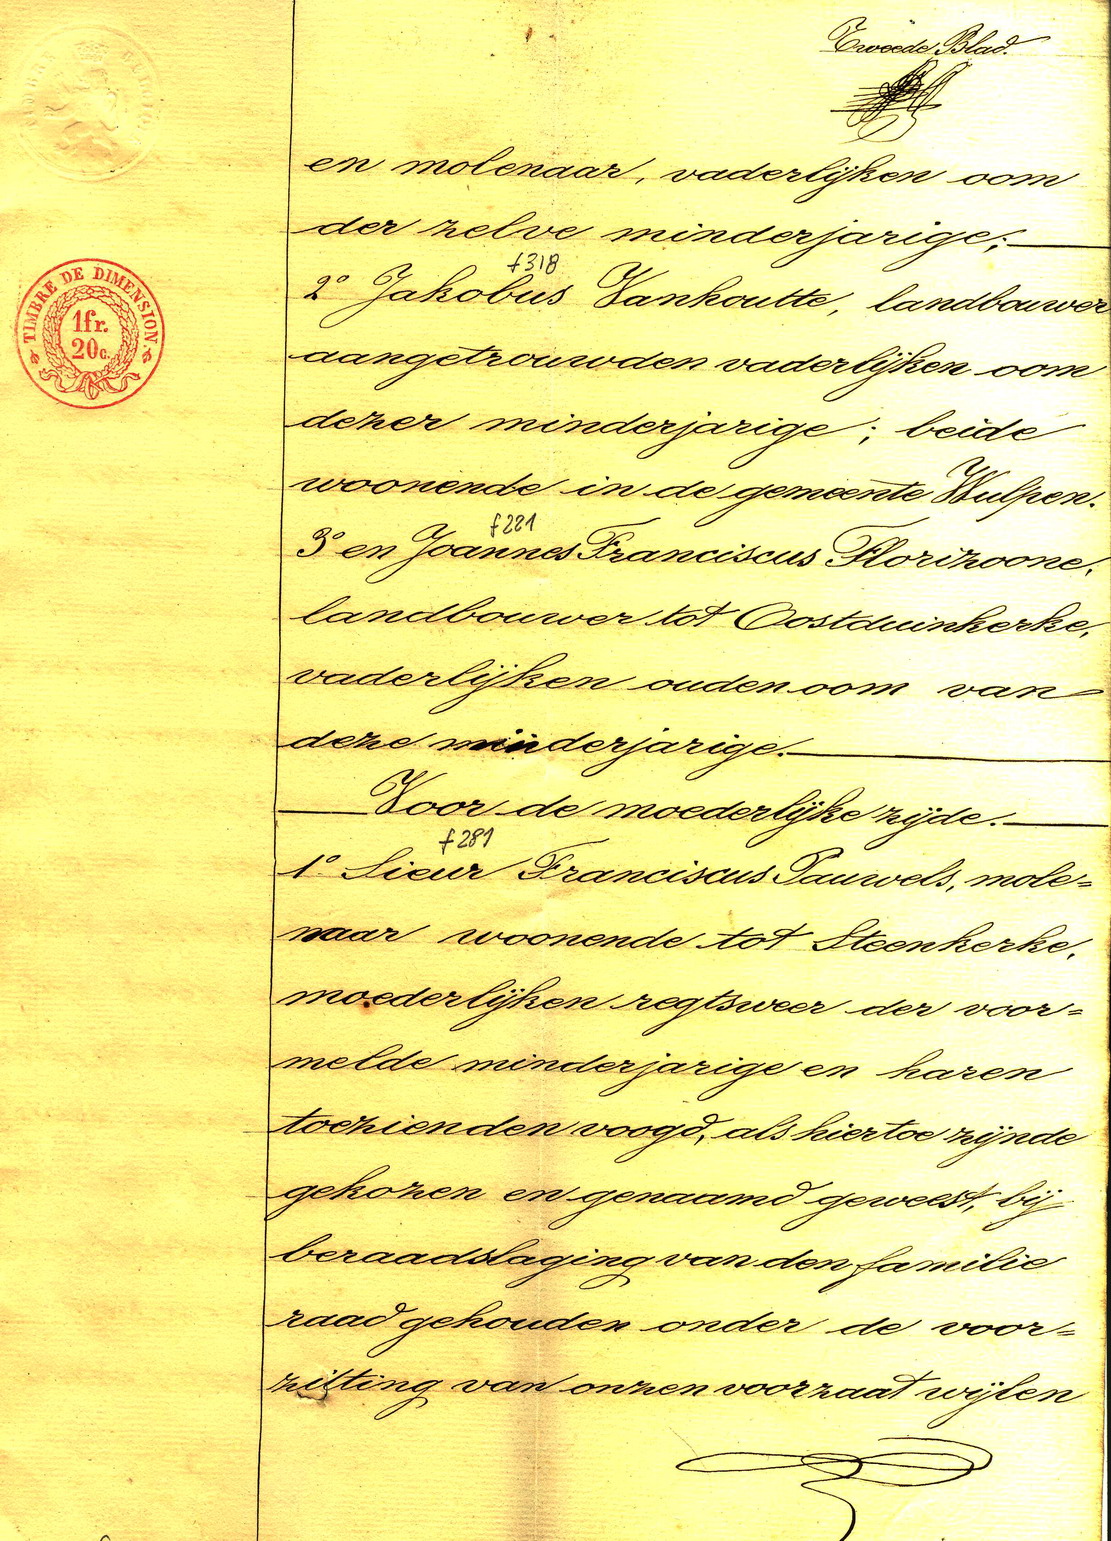 Tweede Blad.
en molenaar, vaderlijken oom
der zelve minderjarige;
TIMBRE DE DIMENSION.
1fr.
20c.
f318
2° Jakobus Vanhoutte, landbouwer
aangetrouwden vaderlijken oom
dezer minderjarige; beide
woonende in de gemeente Wulpen.
f221
3° en Joannes Franciscus Florizoone,
landbouwer tot Oostduinkerke,
vaderlijken ouden oom van
deze minderjarige.
Voor de moederlijke zijde.
f281
1° Sieur Franciscus Pauwels, mole=
naar woonende tot Steenkerke,
moederlijken regtsweer der voor=
melde minderjarige en haren
toezienden voogd, als hiertoe zijnde
gekozen en genaamd geweest, bij
beraadslaging van den familie
raad gehouden onder de voor=
zitting van onzen voorzaat wijlen